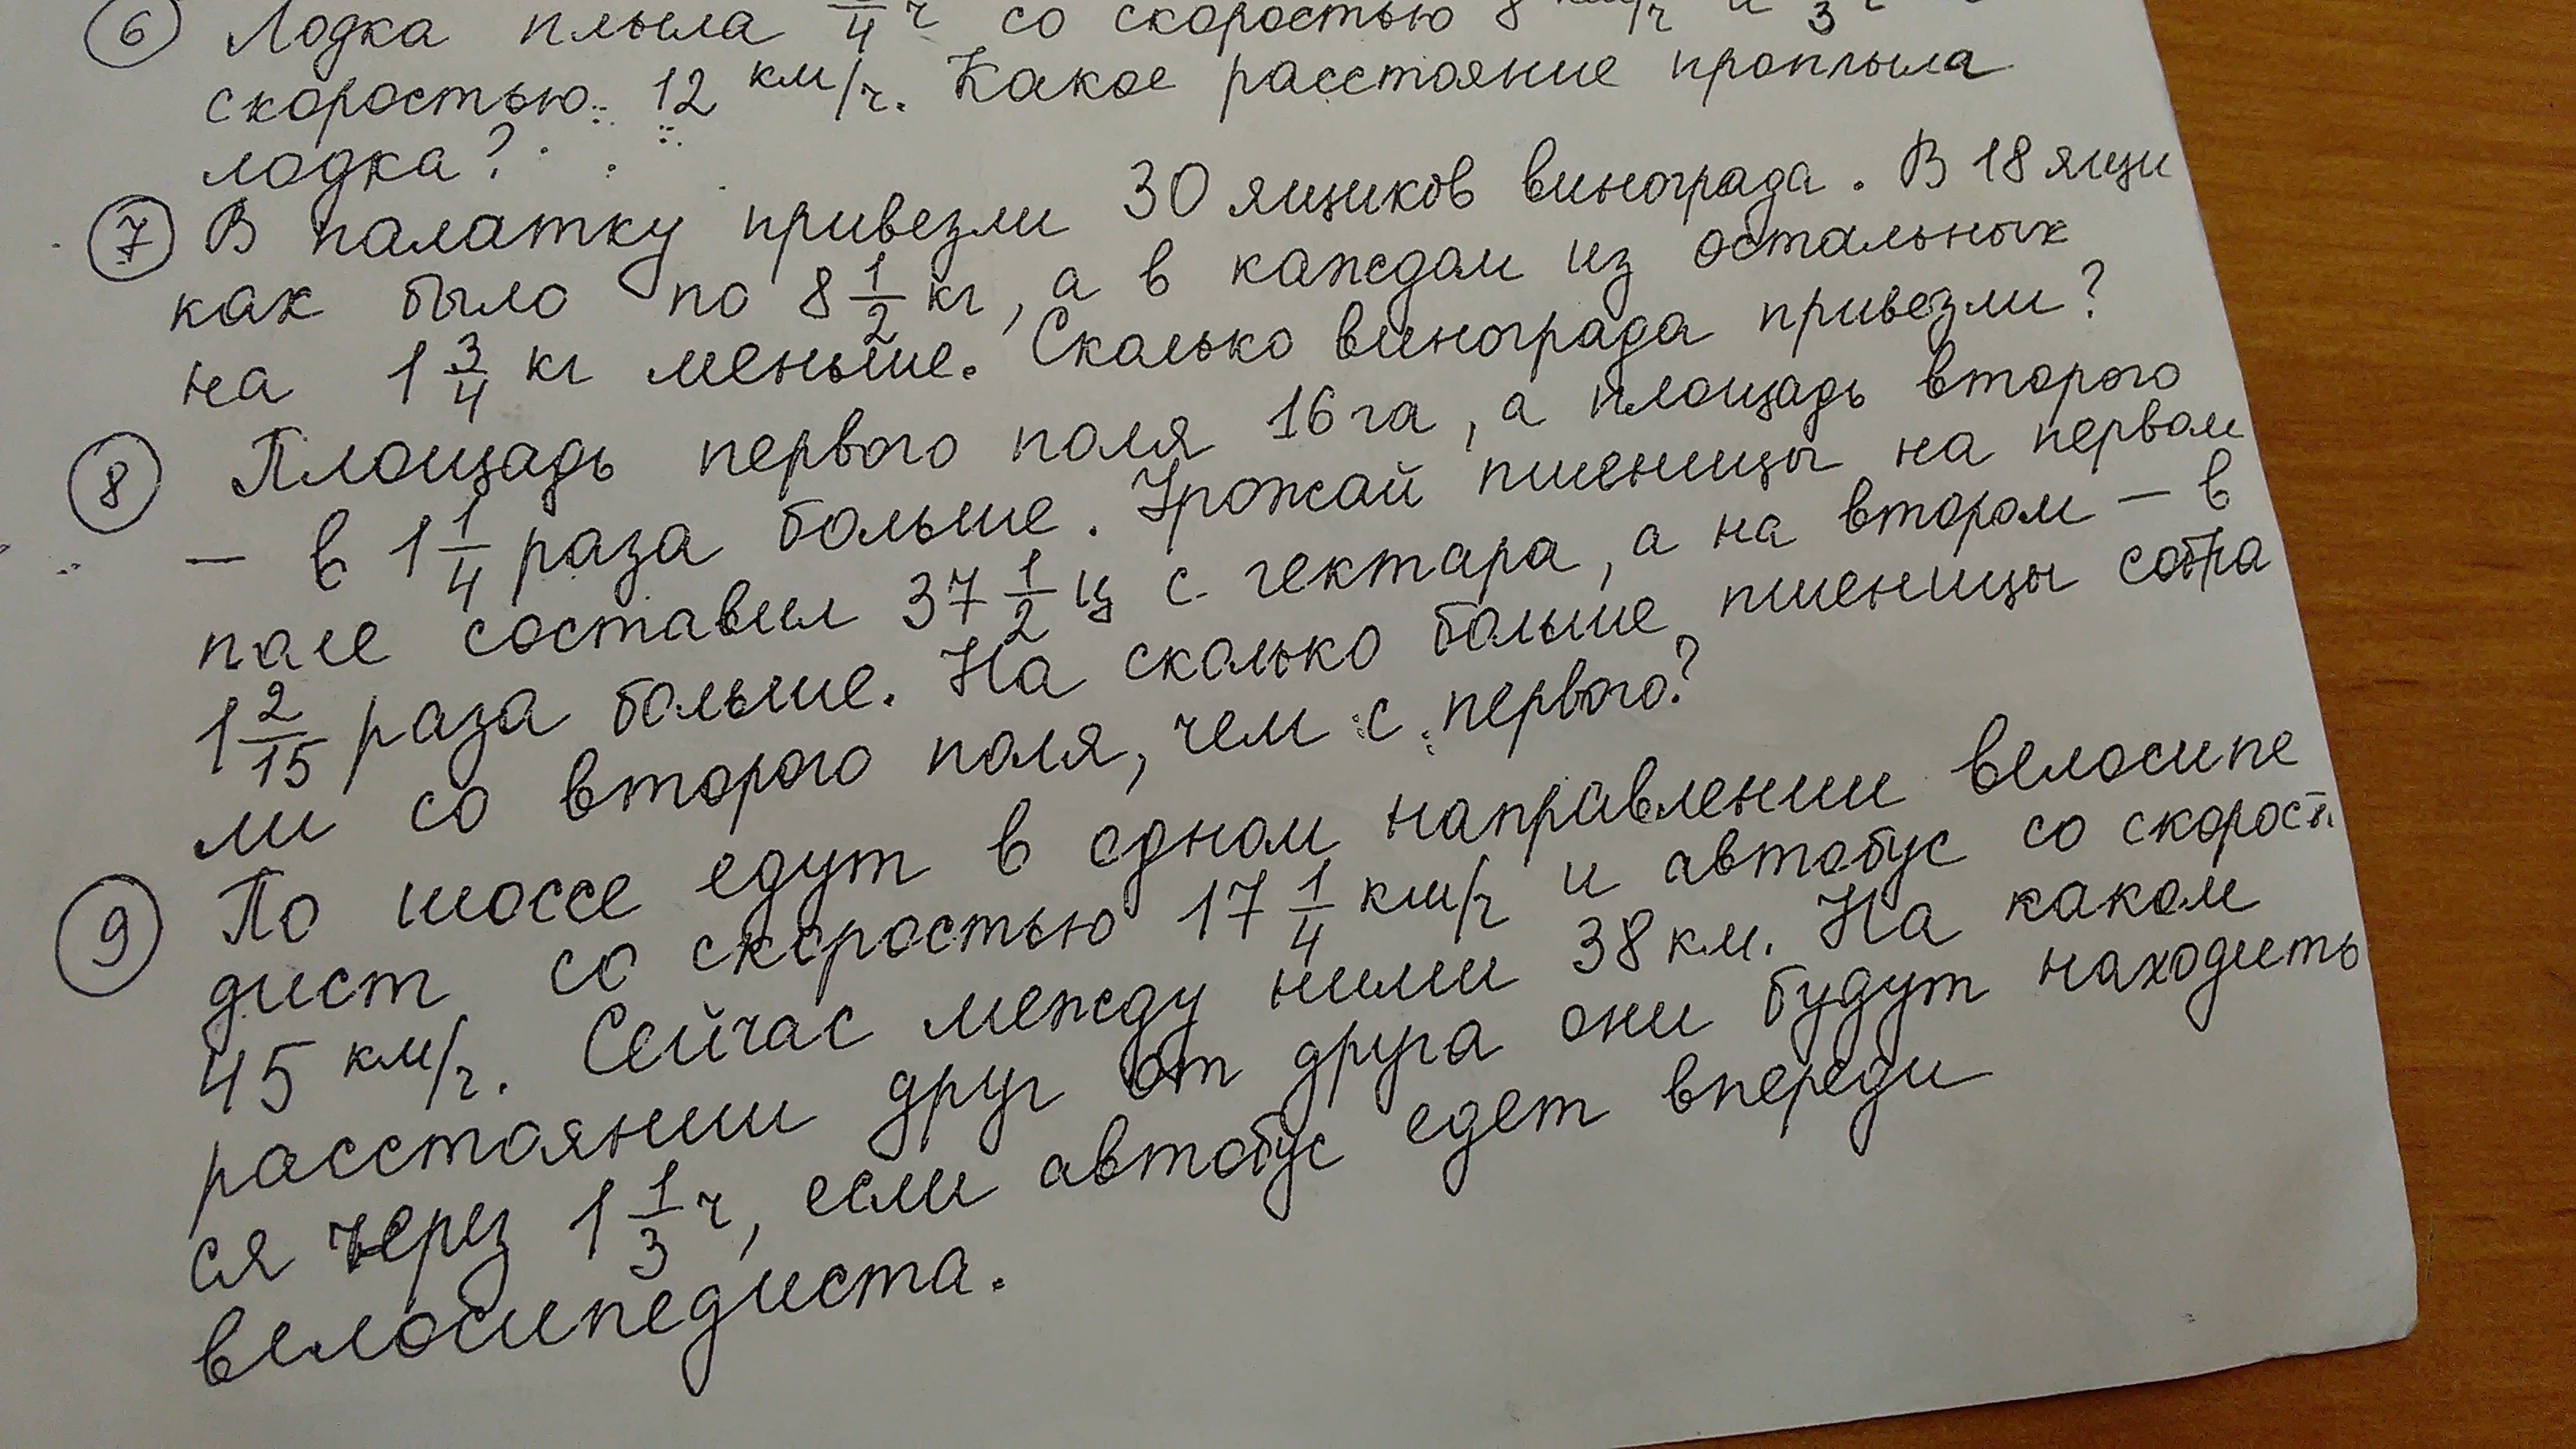 6 Лодка плыла /4 ч со скоростью 8 км/ч и /3 ч
скоростью 12 км/ч. Какое расстояние проплыла
лодка?
7 В палатку привезли 30 ящиков винограда. В 18 ящи
ках было по 8 1/2 кг, а в каждом из остальных
на 1 3/4 кг меньше. Сколько винограда привезли?
8 Площадь первого поля 16 га, а площадь второго
– в 1 1/4 раза больше. Урожай пшеницы на первом
поле составил 37 1/2 ц с гектара, а на втором – в
1 2/15 раза больше. На сколько больше пшеницы собра
ли со второго поля, чем с первого?
9 По шоссе едут в одном направлении велосипе
дист со скоростью 17 1/4 км/ч и автобус со скорост
45 км/ч. Сейчас между ними 38 км. На каком
расстоянии друг от друга они будут находить
ся через 1 1/3 ч, если автобус едет впереди
велосипедиста.